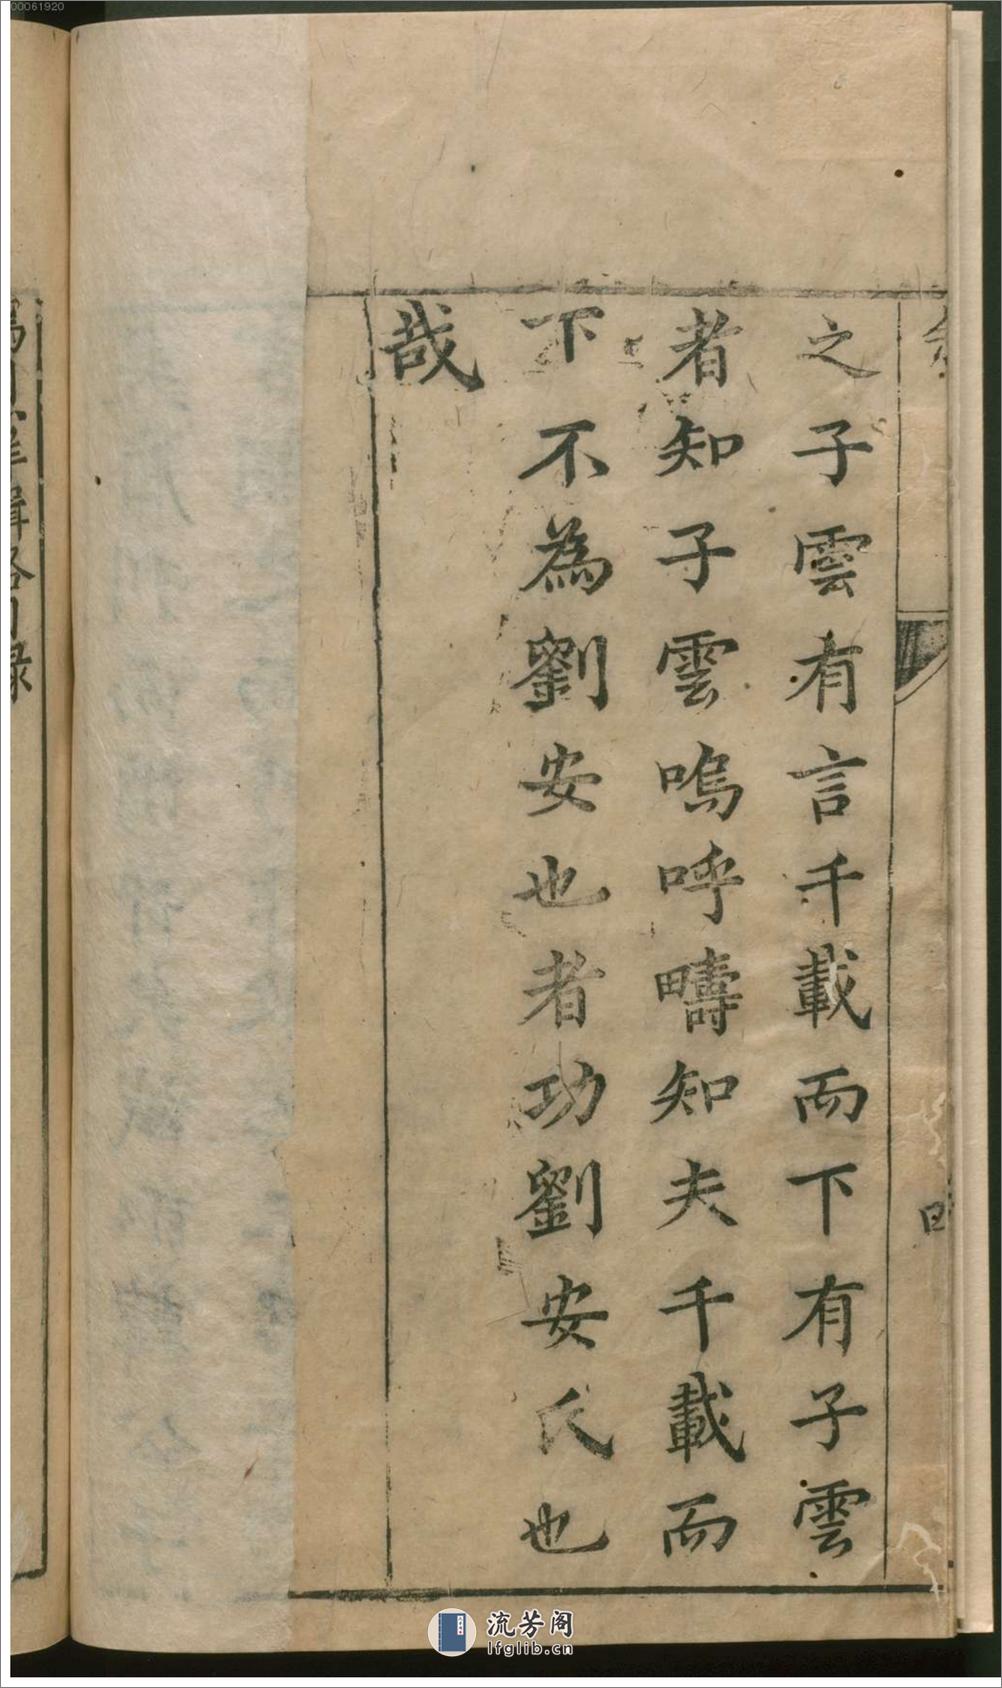 之子雲有言千載而下有子雲
者知子雲嗚呼疇知夫千載而
下不為劉安也者功劉安氏也
哉
00061920
流芳阁
lfglib.cn